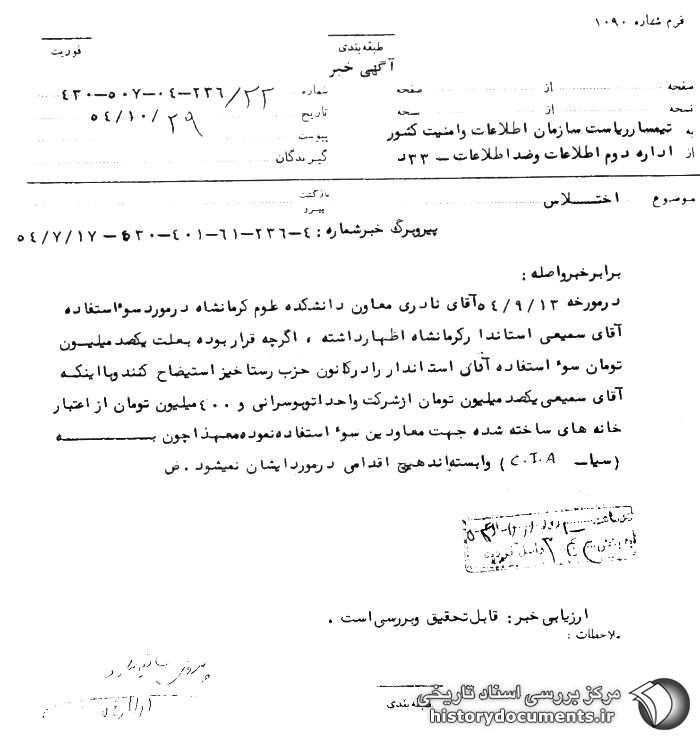 فرم شماره ۱۰۹۰
فوریت
طبقه‌بندی
آگهی خبر
صفحه از صفحه شماره ۲۲/۲۳۶-۰۴-۵۰۷-۴۳۰
نسخه از نسخه تاریخ ۲۹/۵۴/۱۰
به تیمسار ریاست سازمان اطلاعات وامنیت کشور پیوست
از اداره دوم اطلاعات وضداطلاعات - ۳۳د گیرندگان
موضوع اختلاس بازگشت پیرو
پیروبرگ خبرشماره: ۴-۲۳۶-۶۱-۴۰۱-۵۳۰-۵۴/۷/۱۷
برابرخبرواصله:
درمورخه ۵۴/۹/۱۳ آقای نادری معاون دانشکده علوم کرمانشاه درمورد سوءاستفاده
آقای سمیعی استاندارکرمانشاه اظهارداشته ، اگرچه قرار بوده بعلت یکصد میلیون
تومان سوء استفاده آقای استاندار رادرکانون حزب رستاخیز استیضاح کنند وبااینکه
آقای سمیعی یکصد میلیون تومان ازشرکت واحد اتوبوسرانی و ۴۰۰ میلیون تومان از اعتبار
خانه های ساخته شده جهت معاودین سوء استفاده نموده معهذا چون به
(سیا- C.I.A) وابسته‌اند هیچ اقدامی درمورد ایشان نمیشود. ض
ارزیابی خبر: قابل تحقیق وبررسی است .
ملاحظات:
طبقه بندی
مرکز بررسی اسناد تاریخی
historydocuments.ir